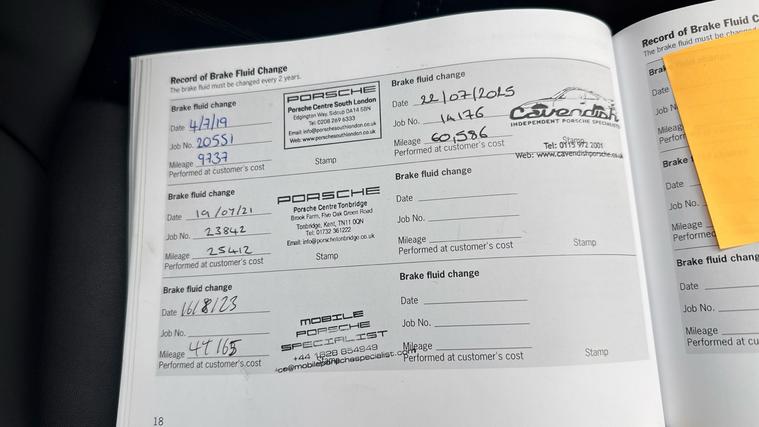 Record of Brake Fluid Change
The brake fluid must be changed every 2 years.
Brake fluid change
Date 4/7/19
Job No. 20551
Mileage 9737
Performed at customer's cost
PORSCHE
Porsche Centre South London
Edgington Way, Sidcup DA14 5BN
Tel: 0208 269 6333
Email: info@porschesouthlondon.co.uk
Web: www.porschesouthlondon.co.uk
Stamp
Brake fluid change
Date 19/07/21
Job No. 23842
Mileage 25412
Performed at customer's cost
PORSCHE
Porsche Centre Tonbridge
Brook Farm, Five Oak Green Road
Tonbridge, Kent, TN11 0QN
Tel: 01732 361222
Email: info@porschetonbridge.co.uk
Stamp
Brake fluid change
Date 16/8/23
Job No.
Mileage 44165
Performed at customer's cost
MOBILE
PORSCHE
SPECIALIST
+44 1628 654949
ce@mobileporschespecialist.com
Stamp
Brake fluid change
Date 22/07/2025
Job No. 14176
Mileage 60,586
Performed at customer's cost
Cavendish
INDEPENDENT PORSCHE SPECIALISTS
Stamp
Tel: 0115 972 2001
Web: www.cavendishporsche.co.uk
Brake fluid change
Date
Job No.
Mileage
Performed at customer's cost
Stamp
Brake fluid change
Date
Job No.
Mileage
Performed at customer's cost
Stamp
18
Record of Brake Fluid C
The brake fluid must be
Brak
Date
Job N
Mileag
Perfor
Brake
Date
Job No.
Mileage
Performed
Brake fluid chang
Date
Job No.
Mileage
Performed at cu